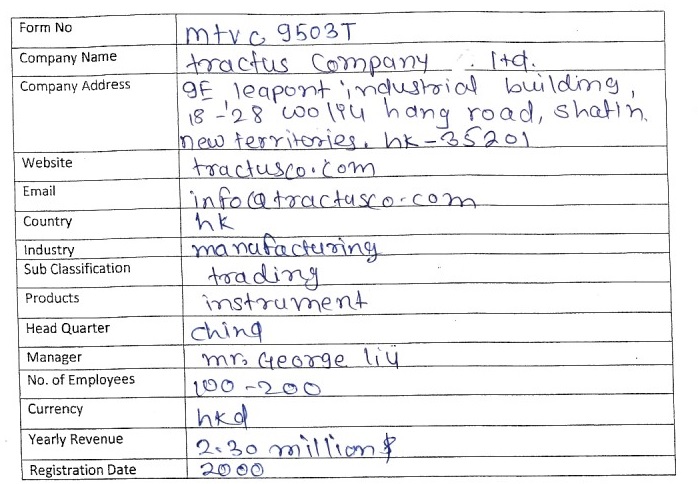 Form No mtvc 9503T
Company Name tractus Company . ltd.
Company Address 9F leapont industrial building,
18-28 wo liu hang road, shatin.
new territories, hk-35201
Website tractusco.com
Email info@tractusco.com
Country hk
Industry manufacturing
Sub Classification trading
Products instrument
Head Quarter china
Manager mr. George liu
No. of Employees 100-200
Currency hkd
Yearly Revenue 2.30 million $
Registration Date 2000